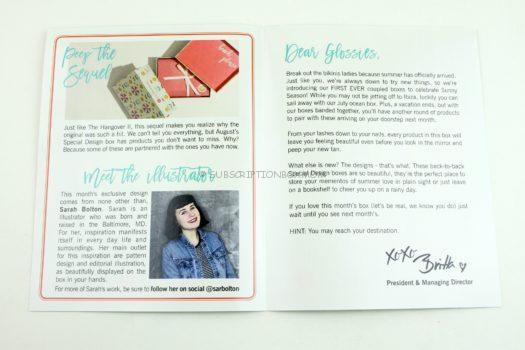 Peep the
Sequel
Just like The Hangover II, this sequel makes you realize why the
original was such a hit. We can't tell you everything, but August's
Special Design box has products you don't want to miss. Why?
Because some of these are partnered with the ones you have now.
Meet the illustrator
This month's exclusive design
comes from none other than,
Sarah Bolton. Sarah is an
illustrator who was born and
raised in the Baltimore, MD.
For her, inspiration manifests
itself in every day life and
surroundings. Her main outlet
for this inspiration are pattern
design and editorial illustration,
as beautifully displayed on the
box in your hands.
For more of Sarah's work, be sure to follow her on social @sarbolton
Dear Glossies,
Break out the bikinis ladies because summer has officially arrived.
Just like you, we're always down to try new things, so we're
introducing our FIRST EVER coupled boxes to celebrate Sunny
Season! While you may not be jetting off to Ibiza, luckily you can
sail away with our July ocean box. Plus, a vacation ends, but with
our boxes banded together, you'll have another round of products
to pair with these arriving on your doorstep next month.
From your lashes down to your nails, every product in this box will
leave you feeling beautiful even before you look in the mirror and
peep your new tan.
What else is new? The designs - that's what. These back-to-back
Special Design boxes are so beautiful, they're the perfect place to
store your mementos of summer love in plain sight or just leave
on a bookshelf to cheer you up on a rainy day.
If you love this month's box (let's be real, we know you do) just
wait until you see next month's.
HINT: You may reach your destination.
XoXo,
Britta
President & Managing Director